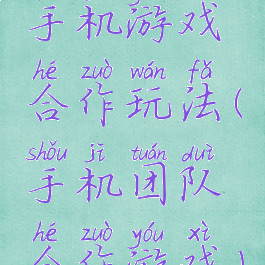 手机游戏
hé zuò wán fǎ
合作玩法(
shǒu jī tuán duì
手机团队
hé zuò yóu xì
合作游戏)